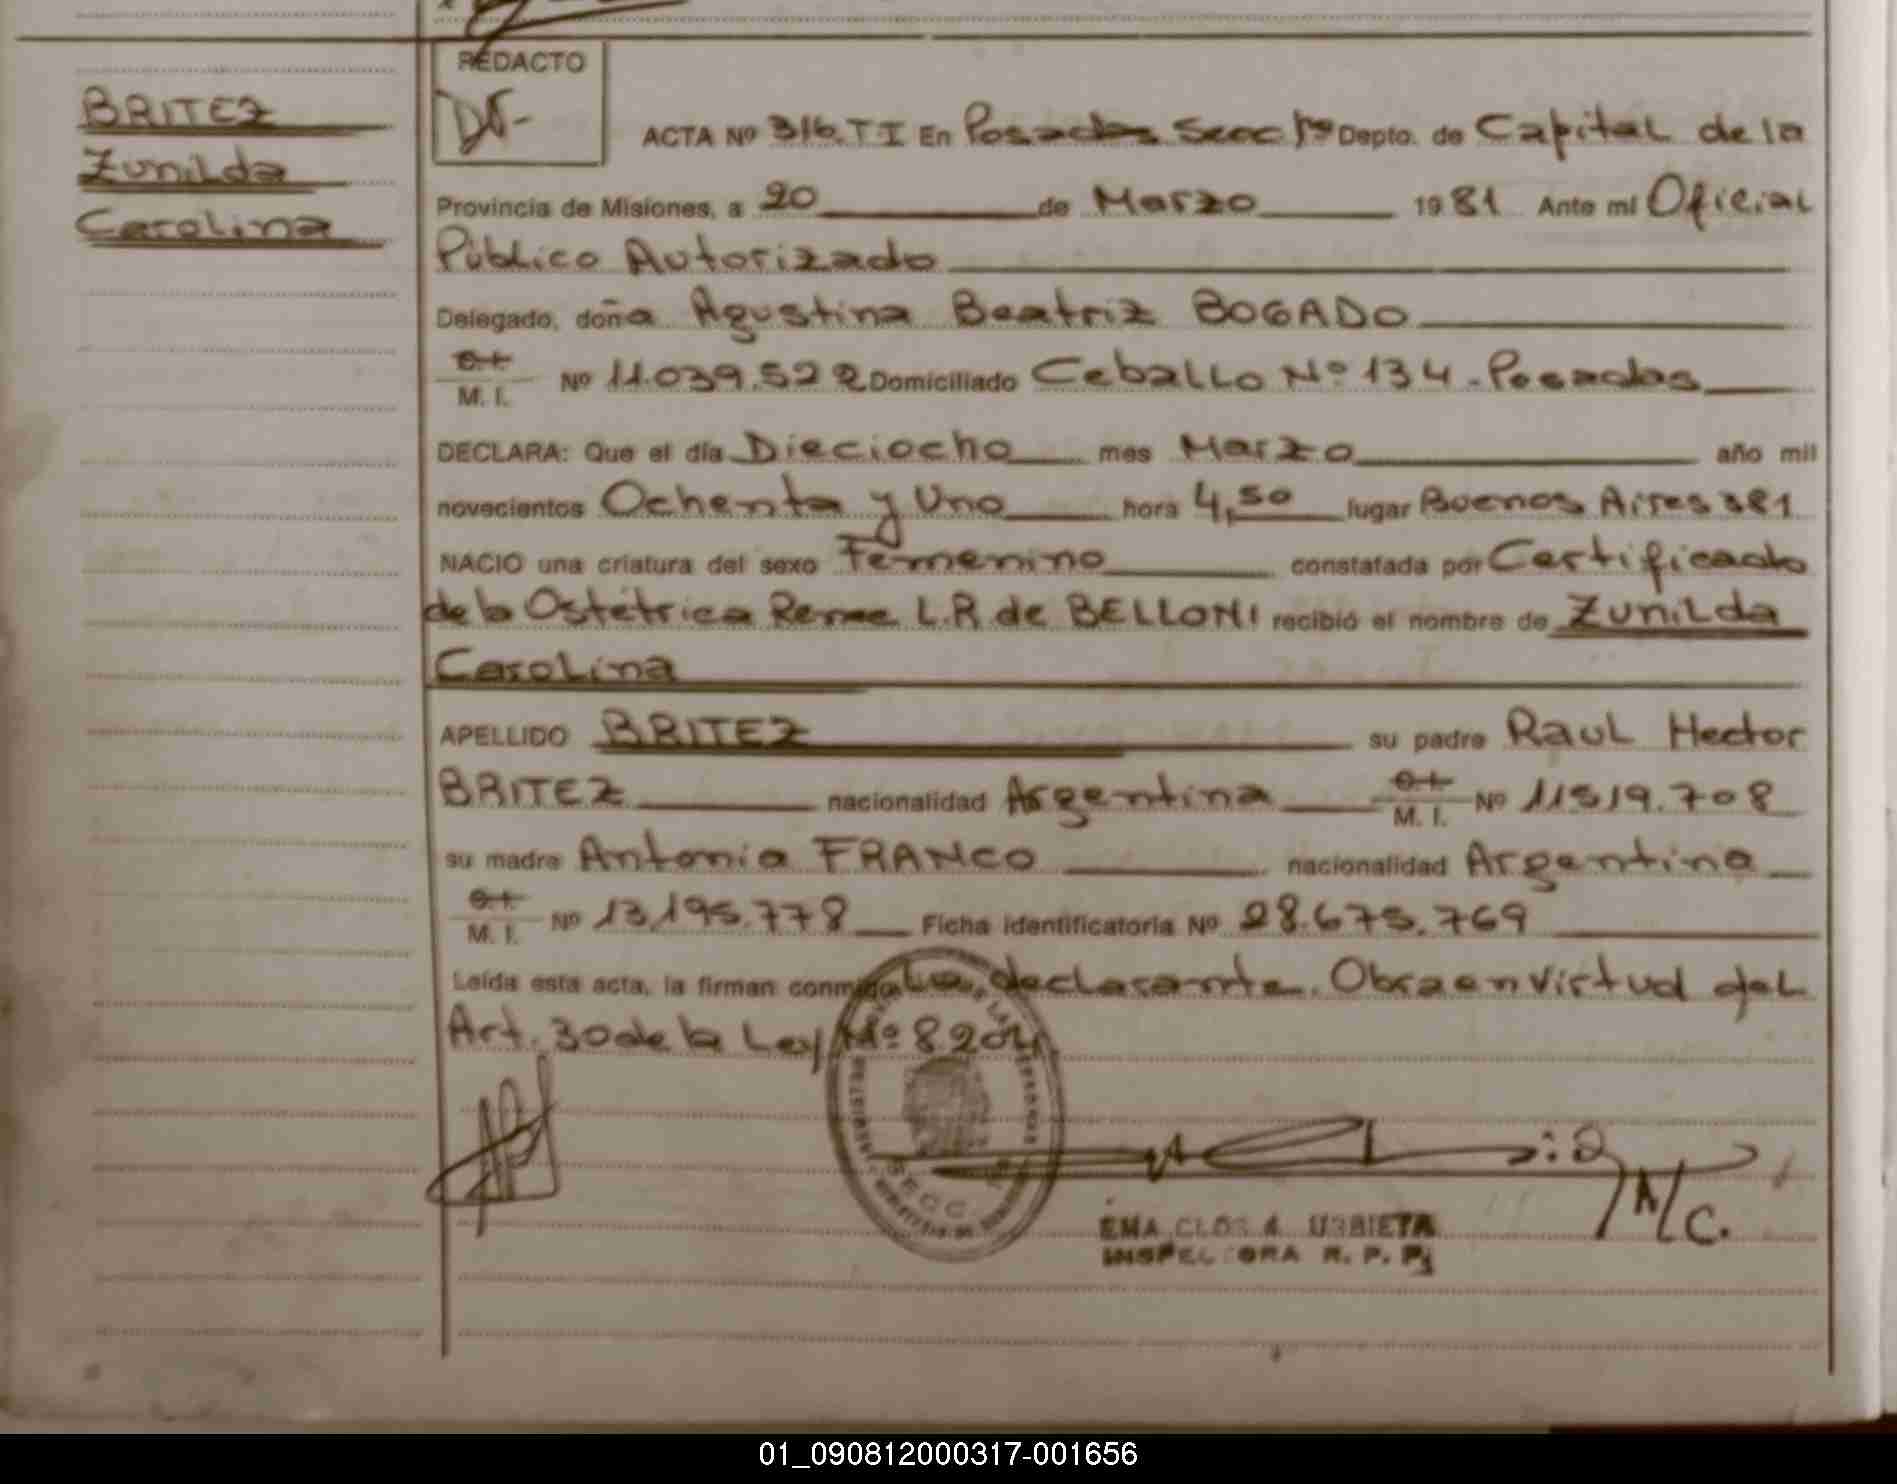 REDACTO
BRITEZ
Zunilda
Carolina
ACTA Nº 316.TI En Posadas Secc 1ª Depto. de Capital de la
Provincia de Misiones, a 20 de Marzo 1981 Ante mí Oficial
Público Autorizado
Delegado, doña Agustina Beatriz BOGADO
M. I. Nº 11.039.522 Domiciliado Ceballo Nº 134 - Posadas
DECLARA: Que el día Dieciocho mes Marzo año mil
novecientos Ochenta y Uno hora 4,50 lugar Buenos Aires 381
NACIO una criatura del sexo Femenino constatada por Certificado
de la Ostétrica L.R. de BELLONI recibió el nombre de Zunilda
Carolina
APELLIDO BRITEZ su padre Raul Hector
BRITEZ nacionalidad Argentina M. I. Nº 11519.708
su madre Antonia FRANCO nacionalidad Argentina
M. I. Nº 13.195.778 Ficha identificatoria Nº 28.675.769
Leída esta acta, la firman conmigo La declarante. Obra en virtud del
Art. 30 de la Ley Nº 8204
SECC.
URBIETA
INSPECTORA R. P. P.
A/C.
01_090812000317-001656